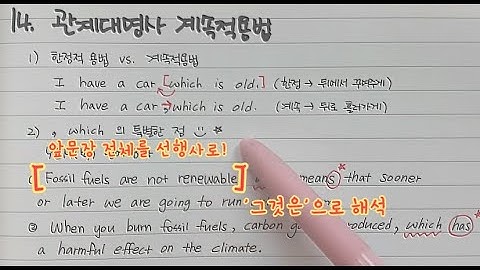 14. 관계대명사 계속적용법
1) 한정적 용법 vs. 계속적용법
I have a car [which is old.] (한정 → 뒤에서 꾸며주게)
I have a car → , which is old. (계속 → 뒤로 흘러가게)
2) , which 의 특별한 점
앞문장 전체를 선행사로!
[Fossil fuels are not renewable] means that sooner
or later we are going to run
'그것은'으로 해석
② When you burn fossil fuels, carbon produced, which has
a harmful effect on the climate.